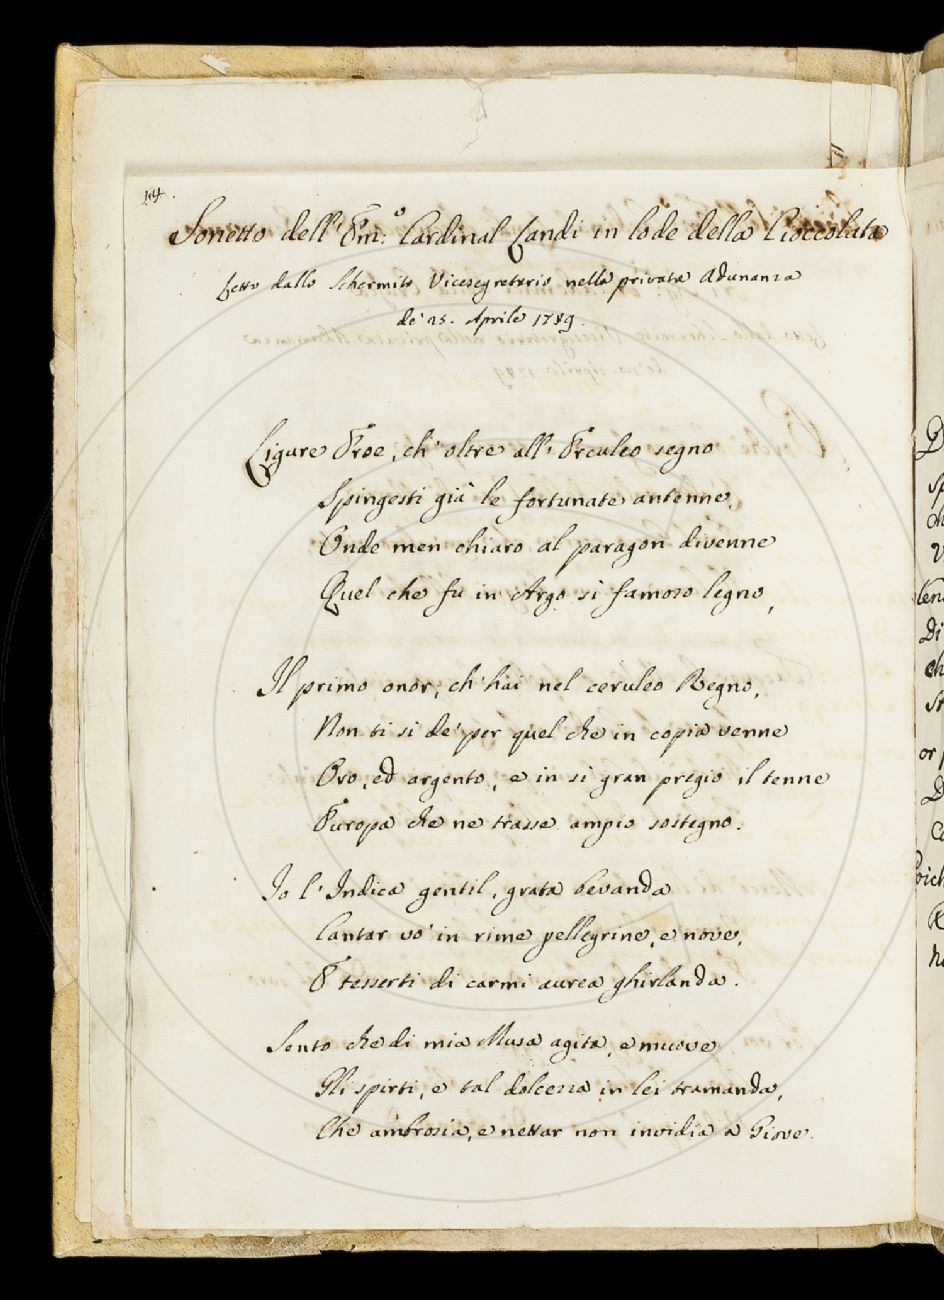 Sonetto dell' Em:o Cardinal Landi in lode della Cioccolata
Letto dallo Schermito Vicesegretario nella privata Adunanza
de' 25. Aprile 1789.
Ligure Eroe, ch' oltre all' Erculeo segno
Spingesti già le fortunate antenne,
Onde men chiaro al paragon divenne
Quel che fu in Argo sì famoso legno,
Il primo onor, ch' hai nel ceruleo Regno,
Non ti si de' per quel che in copia venne
Oro, ed argento, e in sì gran pregio il tenne
Europa che ne trasse ampio sostegno.
Io l' Indica gentil, grata bevanda
Cantar vo' in rime pellegrine, e nove,
E tesserti di carmi aurea ghirlanda.
Sento che di mia Musa agita, e muove
Gli spirti, e tal dolcezza in lei tramanda,
Che ambrosia, e nettar non invidia a Giove.